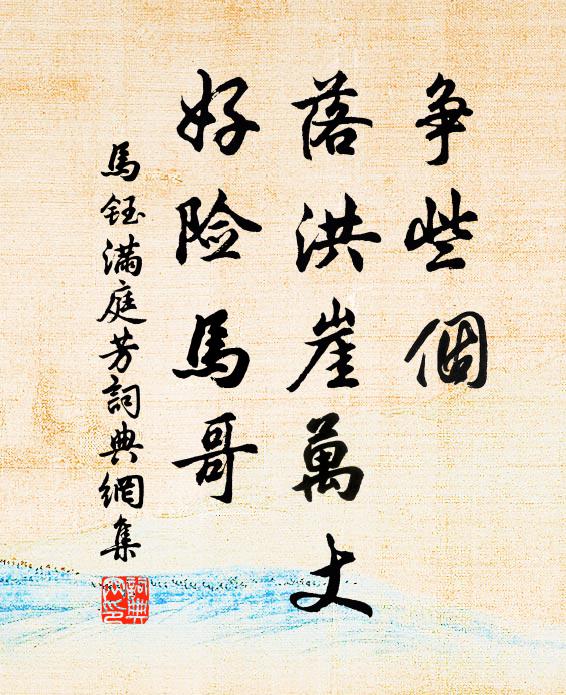 争些個
落洪崖萬丈
好险馬哥
馬鈺滿庭芳詞典網集